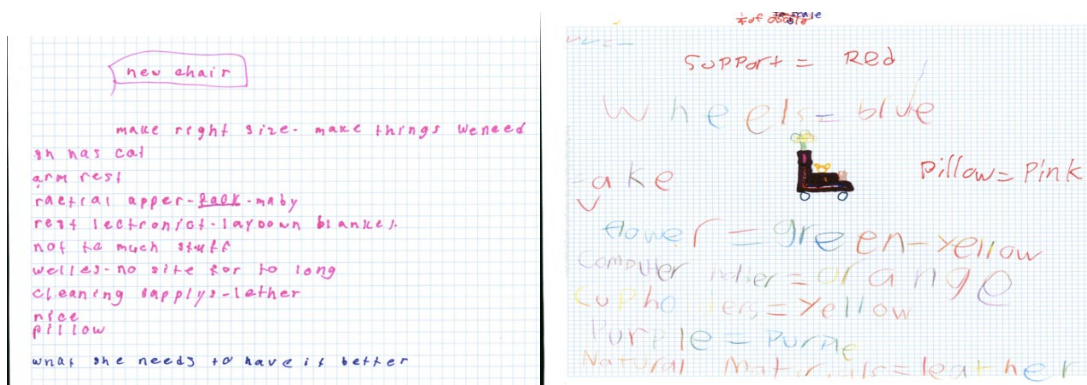 new chair
make right size- make things weneed
sh has cat
arm rest
ractical apper-look-maby
rest lectronict-laydown blanket.
not to much stuff
welles-no site for to long
cleaning sapplys-lether
nice
pillow
what she needs to have it better
1/4 of scale
Support = Red
Wheels = blue
ake
Pillow = Pink
flower = green-yellow
Computer = orange
Cupho ers = Yellow
Purple = Purple
Natural = leather